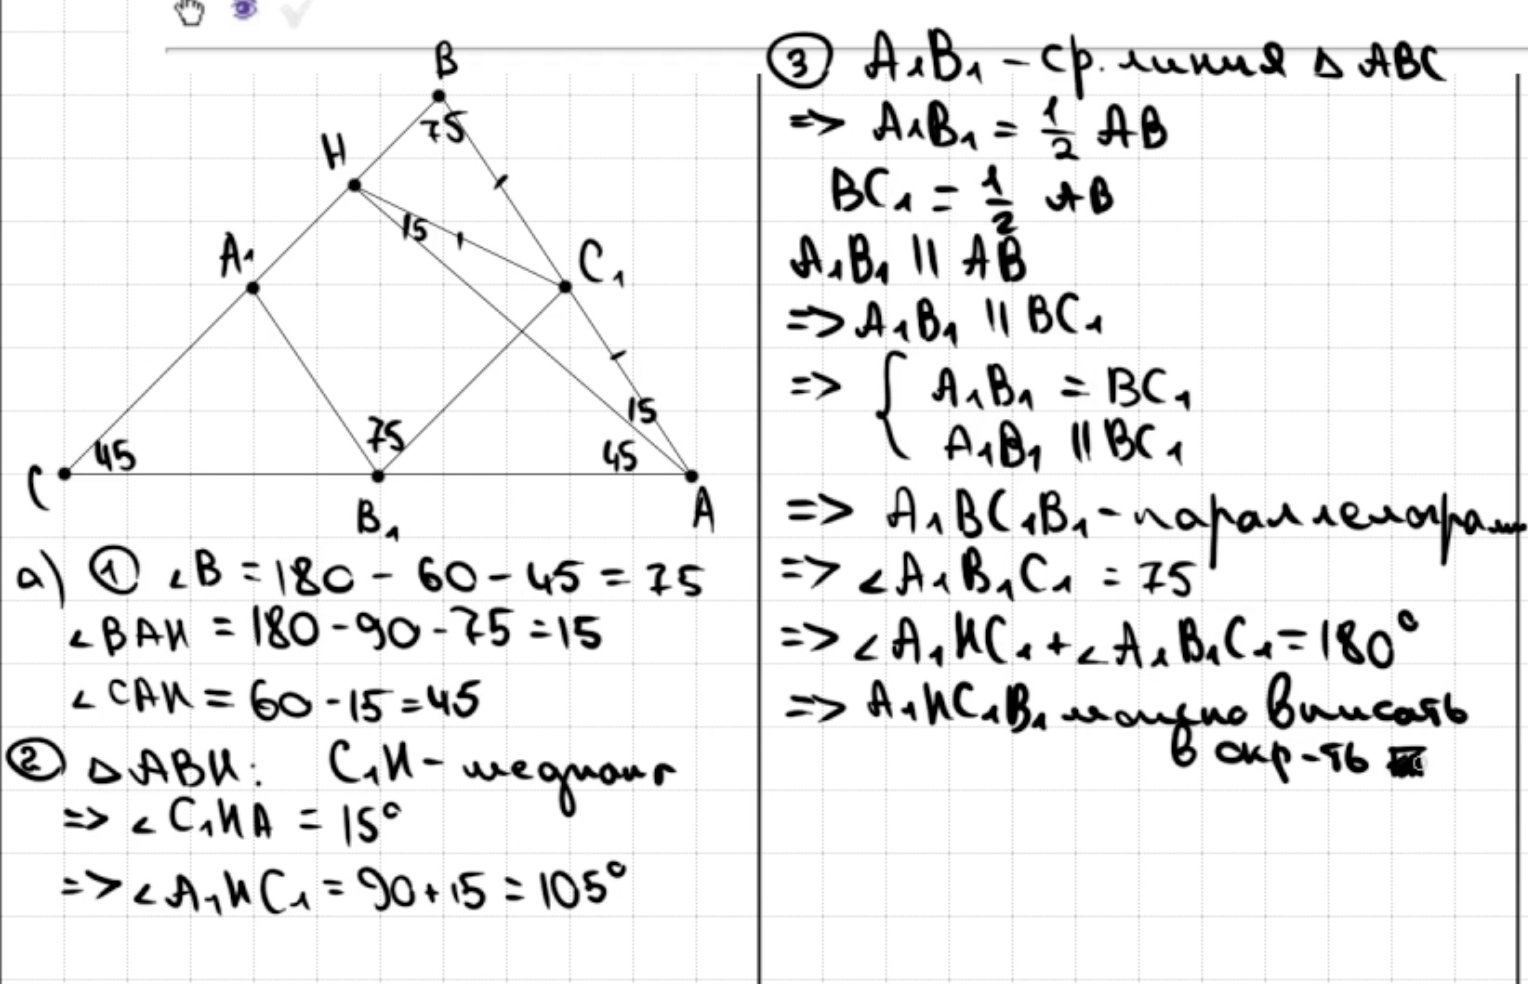 B
75
H
15
A₁
C₁
15
75
45
45
C
B₁
A
а) ① ∠B = 180 - 60 - 45 = 75
∠BAH = 180 - 90 - 75 = 15
∠CAH = 60 - 15 = 45
② △ABH: C₁H - медиана
=> ∠C₁HA = 15°
=> ∠A₁HC₁ = 90 + 15 = 105°
③ A₁B₁ - ср. линия △ABC
=> A₁B₁ = 1/2 AB
BC₁ = 1/2 AB
A₁B₁ || AB
=> A₁B₁ || BC₁
=> { A₁B₁ = BC₁
A₁B₁ || BC₁
=> A₁BC₁B₁ - параллелограмм
=> ∠A₁B₁C₁ = 75
=> ∠A₁HC₁ + ∠A₁B₁C₁ = 180°
=> A₁HC₁B₁ можно вписать
в окр-ть